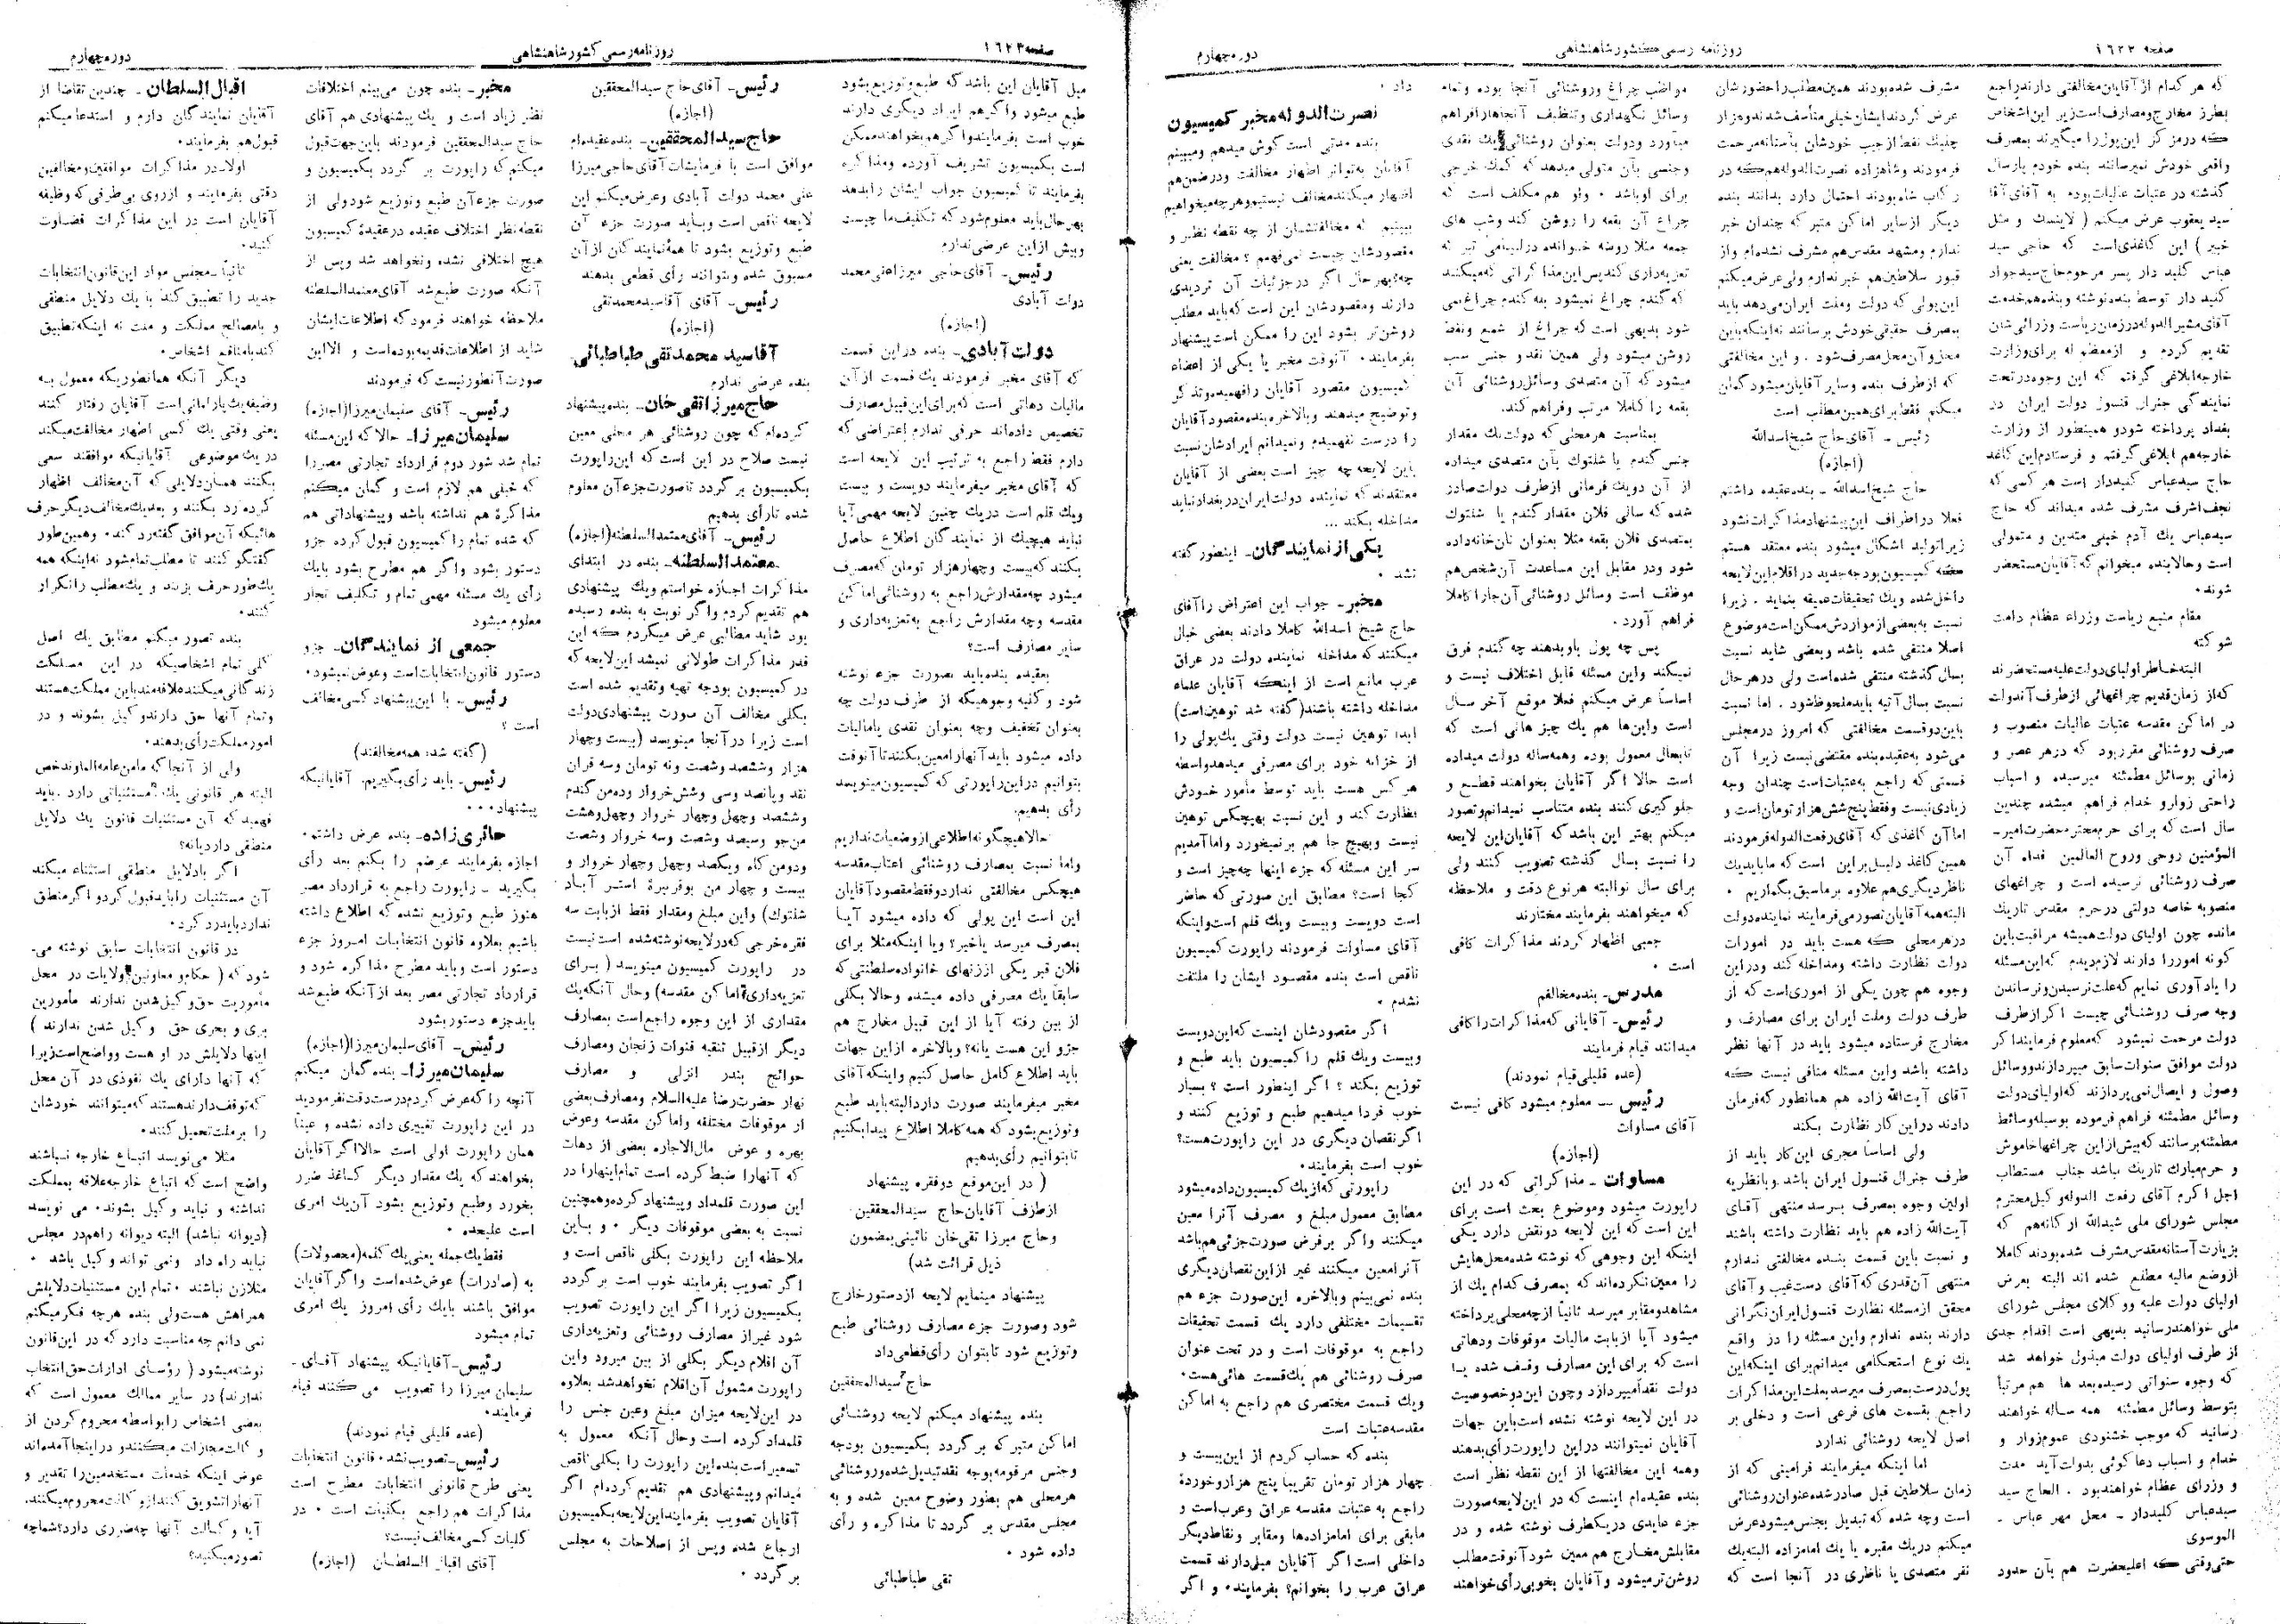 صفحه ۱۶۲۲
روزنامه رسمی کشور شاهنشاهی
دوره چهارم
که هر کدام از آقایان مخالفتی دارند راجع
بطرز مخارج و مصارف است زیر این اشخاص
که در مرکز این پول را میگیرند بمصرف
واقعی خودش نمیرسانند بنده خودم پارسال
گذشته در عتبات عالیات بودم به آقای آقا
سید یعقوب عرض میکنم ( لاینبئک و مثل
خبیر ) این کاغذی است که حاجی سید
عباس کلید دار پسر مرحوم حاج سید جواد
کلید دار توسط بنده نوشته و بنده هم خدمت
آقای مشیر الدوله در زمان ریاست وزرائی شان
تقدیم کردم و از معظم له برای وزارت
خارجه ابلاغی گرفتم که این وجوه در تحت
نمایندگی جنرال قنسول دولت ایران در
بغداد پرداخته شود و همینطور از وزارت
خارجه هم ابلاغی گرفتم و فرستادم این کاغذ
حاج سید عباس کلید دار است هر کسی که
نجف اشرف مشرف شده میداند که حاج
سید عباس یك آدم خیلی متدین و متمولی
است و حالا بنده میخوانم که آقایان مستحضر
شوند.
مقام منیع ریاست وزراء عظام دامت
شوکته
البته خاطر اولیای دولت علیه مستحضرند
که از زمان قدیم چراغهائی از طرف آندولت
در اماکن مقدسه عتبات عالیات منصوب و
صرف روشنائی مقرر بود که در هر عصر و
زمانی بوسائل مطمئنه میرسیده و اسباب
راحتی زوار و خدام فراهم میشده چندین
سال است که برای حرم محترم حضرت امیر-
المؤمنین روحی و روح العالمین فداه آن
صرف روشنائی نرسیده است و چراغهای
منصوبه خاصه دولتی در حرم مقدس تاریك
مانده چون اولیای دولت همیشه مراقبت باین
گونه امور را دارند لازم دیدم که این مسئله
را یاد آوری نمایم که علت نرسیدن و نرساندن
وجه صرف روشنائی چیست اگر از طرف
دولت مرحمت نمیشود که معلوم فرمایند اگر
دولت موافق سنوات سابق میپردازند و وسائل
وصول و ایصال نمی پردازند که اولیای دولت
وسائل مطمئنه فراهم فرموده بوسیله وسائط
مطمئنه برسانند که بیش از این چراغها خاموش
و حرم مبارك تاریك نباشد جناب مستطاب
اجل اکرم آقای رفعت الدوله وکیل محترم
مجلس شورای ملی شیدالله ارکانه هم که
بزیارت آستانه مقدس مشرف شده بودند کاملا
از وضع مالیه مطلع شده اند البته بعرض
اولیای دولت علیه و وکلای مجلس شورای
ملی خواهند رسانید بدیهی است اقدام جدی
از طرف اولیای دولت مبذول خواهد شد
که وجوه سنواتی رسیده بعد ها هم مرتباً
بتوسط وسائل مطمئنه همه ساله خواهند
رسانید که موجب خشنودی عموم زوار و
خدام و اسباب دعا گوئی بدولت آید مدت
و وزرای عظام خواهند بود . الحاج سید
سید عباس کلیددار ـ محل مهر عباس ـ
الموسوی
حتی وقتی که اعلیحضرت هم بآن حدود
مشرف شده بودند همین مطلب را حضورشان
عرض کردند ایشان خیلی متأسف شدند و هزار
چلیك نفط از جیب خودشان بآستانه مرحمت
فرمودند و شاهزاده نصرت الدوله هم که در
رکاب شاه بودند احتمال دارد بدانند بنده
دیگر از سایر اماکن متبرکه چندان خبر
ندارم و مشهد مقدس هم مشرف نشده ام و از
قبور سلاطین هم خبر ندارم ولی عرض میکنم
این پولی که دولت و ملت ایران می دهد باید
بمصرف حقیقی خودش برسانند نه اینکه باین
محل و آن محل مصرف شود . و این مخالفتی
که از طرف بنده و سایر آقایان میشود گمان
میکنم فقط برای همین مطلب است
رئیس ـ آقای حاج شیخ اسدالله
(اجازه)
حاج شیخ اسدالله ـ بنده عقیده داشتم
فعلا در اطراف این پیشنهاد مذاکرات نشود
زیرا تولید اشکال میشود بنده معتقد هستم
که کمیسیون بودجه جدید در اقلام این لایحه
داخل شده و یك تحقیقات عمیقه بنماید . زیرا
نسبت به بعضی از مواردش ممکن است موضوع
اصلا منتفی شده باشد و بعضی شاید نسبت
بسال گذشته منتفی شده است ولی در هر حال
نسبت بسال آتیه باید ملحوظ شود . اما نسبت
باین دو قسمت مخالفتی که امروز در مجلس
می شود به عقیده بنده مقتضی نیست زیرا آن
قسمتی که راجع به عتبات است چندان وجه
زیادی نیست و فقط پنج شش هزار تومان است و
اما آن کاغذی که آقای رفعت الدوله فرمودند
همین کاغذ دلیل بر این است که ما باید یك
ناظر دیگری هم علاوه بر ماسبق بگماریم .
البته همه آقایان تصور می فرمایند نماینده دولت
در هر محلی که هست باید در امورات
دولت نظارت داشته و مداخله کند و در این
وجوه هم چون یکی از اموری است که از
طرف دولت و ملت ایران برای مصارف و
مخارج فرستاده میشود باید در آنها نظر
داشته باشد و این مسئله منافی نیست که
آقای آیت الله زاده هم همانطور که فرمان
دادند در این کار نظارت بکند
ولی اساساً مجری این کار باید از
طرف جنرال قنسول ایران باشد . و بانظر به
اولین وجوه بمصرف برسد منتهی آقای
آیت الله زاده هم باید نظارت داشته باشند
و نسبت باین قسمت بنده مخالفتی ندارم
منتهی آن قدری که آقای دست غیب و آقای
محقق از مسئله نظارت قنسول ایران نگرانی
دارند بنده ندارم و این مسئله را در واقع
یك نوع استحکامی میدانم برای اینکه این
پول درست بمصرف میرسد بعلت این مذاکرات
راجع بقسمت های فرعی است و دخلی بر
اصل لایحه روشنائی ندارد
اما اینکه میفرمایند فرامینی که از
زمان سلاطین قبل صادر شده عنوان روشنائی
است و چه شده که تبدیل بجنس میشود عرض
میکنم در یك مقبره یا یك امامزاده البته یك
نفر متصدی یا ناظری در آنجا است که
مواظب چراغ و روشنائی آنجا بوده و تمام
وسائل نگهداری و تنظیف آنجا ها را فراهم
میآورد و دولت بعنوان روشنائی یك نقدی
و جنسی بآن متولی میدهد که کمك خرجی
برای او باشد . ولو هم مکلف است که
چراغ آن بقعه را روشن کند و شب های
جمعه مثلا روضه خوانده در لیالی متبر که
تعزیه داری کند پس این مذاکراتی که میکنند
که گندم چراغ نمیشود بدیهی است گندم چراغ نمی
شود بدیهی است که چراغ از شمع و نفط
روشن میشود ولی همین نقد و جنس سبب
میشود که آن متصدی وسائل روشنائی آن
بقعه را کاملا مرتب و فراهم کند.
بمناسبت هر محلی که دولت یك مقدار
جنس گندم یا شلتوك بآن متصدی میداده
از آن دو یك فرمانی از طرف دولت صادر
شده که سالی فلان مقدار گندم یا شلتوك
بمتصدی فلان بقعه مثلا بعنوان نان خانه داده
شود و در مقابل این مساعدت آن شخص هم
موظف است وسائل روشنائی آن جا را کاملا
فراهم آورد .
پس چه پول باو بدهند چه گندم فرق
نمیکند و این مسئله قابل اختلاف نیست و
اساساً عرض میکنم فعلا موقع آخر سال
است و این ها هم یك چیز هائی است که
تا بحال معمول بوده و همه ساله دولت میداده
است حالا اگر آقایان بخواهند قطع و
جلوگیری کنند بنده متناسب نمیدانم و تصور
میکنم بهتر این باشد که آقایان این لایحه
را نسبت بسال گذشته تصویب کنند ولی
برای سال نو البته هر نوع دقت و ملاحظه
که میخواهند بفرمایند مختارند
جمعی اظهار کردند مذاکرات کافی
است .
مدرس ـ بنده مخالفم
رئیس ـ آقایانی که مذاکرات را کافی
میدانند قیام فرمایند
(عده قلیلی قیام نمودند)
رئیس ـ معلوم میشود کافی نیست
آقای مساوات
(اجازه)
مساوات ـ مذاکراتی که در این
راپورت میشود و موضوع بحث است برای
این است که این لایحه دو نقض دارد یکی
اینکه این وجوهی که نوشته شده محل هایش
را معین نکرده اند که بمصرف کدام یك از
مشاهد و مقابر میرسد ثانیاً از چه محلی پرداخته
میشود آیا از بابت مالیات موقوفات و دهاتی
است که برای این مصارف وقف شده یا
دولت نقداً میپردازد و چون این دو خصوصیت
در این لایحه نوشته نشده است باین جهات
آقایان نمیتوانند در این راپورت رأی بدهند
و همه این مخالفتها از این نقطه نظر است
بنده عقیده ام اینست که در این لایحه صورت
جزء عایدی در یکطرف نوشته شده و در
مقابلش مخارج هم معین شود آنوقت مطلب
روشن تر میشود و آقایان بخوبی رأی خواهند
داد .
نصرت الدوله مخبر کمیسیون
بنده مدتی است گوش میدهم و میبینم
آقایان به تواتر اظهار مخالفت و در ضمن هم
اظهار میکنند مخالف نیستیم و هر چه میخواهیم
ببینیم که مخالفتشان از چه نقطه نظر و
مقصودشان چیست نمی فهمم ؟ مخالفت یعنی
چه؟ بهر حال اگر در جزئیات آن تردیدی
دارند و مقصودشان این است که باید مطلب
روشن تر بشود این را ممکن است پیشنهاد
بفرمایند. آنوقت مخبر یا یکی از اعضاء
کمیسیون مقصود آقایان را فهمیده و تذکر
و توضیح میدهند و بالاخره بنده مقصود آقایان
را درست نفهمیدم و نمیدانم ایرادشان نسبت
باین لایحه چه چیز است بعضی از آقایان
معتقدند که نماینده دولت ایران در بغداد نباید
مداخله بکند ...
یکی از نمایندگان ـ اینطور گفته
نشد .
مخبر ـ جواب این اعتراض را آقای
حاج شیخ اسدالله کاملا دادند بعضی خیال
میکنند که مداخله نماینده دولت در عراق
عرب مانع است از اینکه آقایان علماء
مداخله داشته باشند (گفته شد توهین است)
ابداً توهین نیست دولت وقتی یك پولی را
از خزانه خود برای مصرفی میدهد واسطه
هر کس هست باید توسط مأمور خودش
نظارت کند و این نسبت بهیچکس توهین
نیست و بهیچ جا هم بر نمیخورد و اما آمدیم
سر این مسئله که جزء اینها چه چیز است و
کجا است؟ مطابق این صورتی که حاضر
است دویست و بیست و یك قلم است و اینکه
آقای مساوات فرمودند راپورت کمیسیون
ناقص است بنده مقصود ایشان را ملتفت
نشدم .
اگر مقصودشان اینست که این دویست
و بیست و یك قلم را کمیسیون باید طبع و
توزیع بکند ؟ اگر اینطور است ؟ بسیار
خوب فردا میدهیم طبع و توزیع کنند و
اگر نقصان دیگری در این راپورت هست؟
خوب است بفرمایند.
راپورتی که از یك کمیسیون داده میشود
مطابق معمول مبلغ و مصرف آنرا معین
میکنند و اگر بر فرض صورت جزئی هم باشد
آنرا معین میکنند غیر از این نقصان دیگری
بنده نمی بینم و بالاخره این صورت جزء هم
تقسیمات مختلفی دارد یك قسمت تحقیقات
راجع به موقوفات است و در تحت عنوان
صرف روشنائی هم یك قسمت هائی هست.
ویك قسمت مختصری هم راجع به اماکن
مقدسه عتبات است
بنده که حساب کردم از این بیست و
چهار هزار تومان تقریباً پنج هزار و خورده
راجع به عتبات مقدسه عراق و عرب است و
مابقی برای امامزاده ها و مقابر و نقاط دیگر
داخلی است اگر آقایان میل دارند قسمت
عراق عرب را بخوانم؟ بفرمایند. و اگر
صفحه ۱۶۲۳
روزنامه رسمی کشور شاهنشاهی
دوره چهارم
میل آقایان این باشد که طبع و توزیع بشود
طبع میشود و اگر هم ایراد دیگری دارند
خوب است بفرمایند و اگر هم بخواهند ممکن
است بکمیسیون تشریف آورده و مذاکره
بفرمایند تا کمیسیون جواب ایشان را بدهد
بهر حال باید معلوم شود که تکلیف ما چیست
و بیش از این عرضی ندارم
رئیس ـ آقای حاجی میرزا علی محمد
دولت آبادی
(اجازه)
دولت آبادی ـ بنده در این قسمت
که آقای مخبر فرمودند یك قسمت از آن
مالیات دهاتی است که برای این قبیل مصارف
تخصیص داده اند حرفی ندارم اعتراضی که
دارم فقط راجع به ترتیب این لایحه است
که آقای مخبر میفرمایند دویست و بیست
و یك قلم است در یك چنین لایحه مهمی آیا
نباید هیچیك از نمایندگان اطلاع حاصل
بکنند که بیست و چهار هزار تومان که مصرف
میشود چه مقدارش راجع به روشنائی اماکن
مقدسه و چه مقدارش راجع به تعزیه داری و
سایر مصارف است؟
بعقیده بنده باید بصورت جزء نوشته
شود و کلیه وجوهیکه از طرف دولت چه
بعنوان تخفیف و چه بعنوان نقدی یا مالیات
داده میشود باید آنها را معین بکنند تا آنوقت
بتوانیم در این راپورتی که کمیسیون مینویسد
رأی بدهیم.
حالا هیچگونه اطلاعی از وضعیات نداریم
و اما نسبت بمصارف روشنائی اعتاب مقدسه
هیچکس مخالفتی ندارد و فقط مقصود آقایان
این است این پولی که داده میشود آیا
بمصرف میرسد یا خیر؟ و یا اینکه مثلا برای
فلان قبر یکی از زنهای خانواده سلطنتی که
سابقاً یك مصرفی داده میشده و حالا بکلی
از بین رفته آیا از این قبیل مخارج هم
جزو این هست یا نه؟ و بالاخره از این جهات
باید اطلاع کامل حاصل کنیم و اینکه آقای
مخبر میفرمایند صورت دارد البته باید طبع
و توزیع بشود که همه کاملا اطلاع پیدا بکنیم
تا بتوانیم رأی بدهیم
( در این موقع دو فقره پیشنهاد
از طرف آقایان حاج سید المحققین
و حاج میرزا تقی خان نائینی بمضمون
ذیل قرائت شد)
پیشنهاد مینمایم لایحه از دستور خارج
شود و صورت جزء مصارف روشنائی طبع
و توزیع شود تا بتوان رأی قطعی داد
حاج سید المحققین
بنده پیشنهاد میکنم لایحه روشنائی
اماکن متبرکه بر گردد بکمیسیون بودجه
و جنس مرقومه بوجه نقد تبدیل شده و روشنائی
هر محلی هم بطور وضوح معین شده و به
مجلس مقدس بر گردد تا مذاکره و رأی
داده شود .
تقی طباطبائی
رئیس ـ آقای حاج سید المحققین
(اجازه)
حاج سید المحققین ـ بنده عقیده ام
موافق است با فرمایشات آقای حاجی میرزا
علی محمد دولت آبادی و عرض میکنم این
لایحه ناقص است و باید صورت جزء آن
طبع و توزیع بشود تا همۀ نمایندگان از آن
مسبوق شده و بتوانند رأی قطعی بدهند
رئیس ـ آقای آقا سید محمد تقی
(اجازه)
آقا سید محمد تقی طباطبائی
بنده عرضی ندارم
حاج میرزا تقی خان ـ بنده پیشنهاد
کرده ام که چون روشنائی هر محلی معین
نیست صلاح در این است که این راپورت
بکمیسیون بر گردد تا صورت جزء آن معلوم
شده تا رأی بدهیم
رئیس ـ آقای معتمد السلطنه (اجازه)
معتمد السلطنه ـ بنده در ابتدای
مذاکرات اجازه خواستم و یك پیشنهادی
هم تقدیم کردم و اگر نوبت به بنده رسیده
بود شاید مطالبی عرض میکردم که این
قدر مذاکرات طولانی نمیشد این لایحه که
در کمیسیون بودجه تهیه و تقدیم شده است
بکلی مخالف آن صورت پیشنهادی دولت
است زیرا در آنجا مینویسد (بیست و چهار
هزار و ششصد و شصت و نه تومان و سه قران
نقد و پانصد و سی و شش خروار و ده من گندم
و ششصد و چهل و چهار خروار و چهل و هشت
من جو و سیصد و شصت و سه خروار و شصت
و دو من کاه و یکصد و چهل و چهار خروار و
بیست و چهار من بوقریرۀ استر آباد
شلتوك) و این مبلغ و مقدار فقط از بابت سه
فقره خرجی که در لایحه نوشته شده است نیست
در راپورت کمیسیون مینویسد ( برای
تعزیه داری و اماکن مقدسه) و حال آنکه یك
مقداری از این وجوه راجع است بمصارف
دیگر از قبیل تنقیه قنوات زنجان و مصارف
حوائج بندر انزلی و مصارف
نهار حضرت رضا علیه السلام و مصارف بعضی
از موقوفات مختلفه و اماکن مقدسه و عوض
بهره و عوض مال الاجاره بعضی از دهات
که آنها را ضبط کرده است تمام اینها را در
این صورت قلمداد و پیشنهاد کرده و همچنین
نسبت به بعضی موقوفات دیگر . و باین
ملاحظه این راپورت بکلی ناقص است و
اگر تصویب بفرمایند خوب است بر گردد
بکمیسیون زیرا اگر این راپورت تصویب
شود غیر از مصارف روشنائی و تعزیه داری
آن اقلام دیگر بکلی از بین میرود و این
راپورت مشمول آن اقلام نخواهد شد بعلاوه
در این لایحه میزان مبلغ و عین جنس را
قلمداد کرده است و حال آنکه معمول به
تسعیر است بنده این راپورت را بکلی ناقص
میدانم و پیشنهادی هم تقدیم کرده ام اگر
آقایان تصویب بفرمایند این لایحه بکمیسیون
ارجاع شده و پس از اصلاحات به مجلس
بر گردد .
مخبر ـ بنده چون می بینم اختلافات
نظر زیاد است و یك پیشنهادی هم آقای
حاج سید المحققین فرمودند باین جهت قبول
میکنم که راپورت بر گردد بکمیسیون و
صورت جزء آن طبع و توزیع شود ولی از
نقطه نظر اختلاف عقیده در عقیدۀ کمیسیون
هیچ اختلافی نشده و نخواهد شد و پس از
آنکه صورت طبع شد آقای معتمد السلطنه
ملاحظه خواهند فرمود که اطلاعات ایشان
شاید از اطلاعات قدیمه بوده است و الا این
صورت آنطور نیست که فرمودند
رئیس ـ آقای سلیمان میرزا (اجازه)
سلیمان میرزا ـ حالا که این مسئله
تمام شد شور دوم قرارداد تجارتی مصر را
که خیلی هم لازم است و گمان میکنم
مذاکرۀ هم نداشته باشد و پیشنهاداتی هم
که شده تمام را کمیسیون قبول کرده جزو
دستور بشود و اگر هم مطرح بشود با یك
رأی یك مسئله مهمی تمام و تکلیف تجار
معلوم میشود
جمعی از نمایندگان ـ جزو
دستور قانون انتخابات است و عوض نمیشود.
رئیس ـ با این پیشنهاد کسی مخالف
است ؟
(گفته شد: همه مخالفند)
رئیس ـ باید رأی بگیریم. آقایانیکه
پیشنهاد...
حائری زاده ـ بنده عرض داشتم.
اجازه بفرمایند عرضم را بکنم بعد رأی
بگیرید ـ راپورت راجع به قرارداد مصر
هنوز طبع و توزیع نشده که اطلاع داشته
باشیم بعلاوه قانون انتخابات امروز جزء
دستور است و باید مطرح مذاکره شود و
قرارداد تجارتی مصر بعد از آنکه طبع شد
باید جزء دستور بشود
رئیس ـ آقای سلیمان میرزا (اجازه)
سلیمان میرزا ـ بنده گمان میکنم
آنچه را که عرض کردم درست دقت نفرمودید
در این راپورت تغییری داده نشده و عیناً
همان راپورت اولی است حالا اگر آقایان
بخواهند که یك مقدار دیگر کاغذ ضرر
بخورد و طبع و توزیع بشود آن یك امری
است علیحده .
فقط یك جمله یعنی یك کلمه (محصولات)
به (صادرات) عوض شده است و اگر آقایان
موافق باشند با یك رأی امروز یك امری
تمام میشود
رئیس ـ آقایانیکه پیشنهاد آقای ـ
سلیمان میرزا را تصویب می کنند قیام
فرمایند.
(عده قلیلی قیام نمودند)
رئیس ـ تصویب نشد. قانون انتخابات
یعنی طرح قانونی انتخابات مطرح است
مذاکرات هم راجع بکلیات است . در
کلیات کسی مخالف نیست؟
آقای اقبال السلطان (اجازه)
اقبال السلطان ـ چندین تقاضا از
آقایان نمایندگان دارم و استدعا میکنم
قبول هم بفرمایند.
اولا ـ در مذاکرات موافقین و مخالفین
دقتی بفرمایند و از روی بی طرفی که وظیفه
آقایان است در این مذاکرات قضاوت
کنند.
ثانیاً ـ مجلس مواد این قانون انتخابات
جدید را تطبیق کند با یك دلایل منطقی
و با مصالح مملکت و ملت نه اینکه تطبیق
کند با منافع اشخاص.
دیگر آنکه همانطوریکه معمول به
وظیفه یك پارلمانی است آقایان رفتار کنند
یعنی وقتی یك کسی اظهار مخالفت میکند
در یك موضوعی آقایانیکه موافقند سعی
بکنند همان دلایلی که آن مخالف اظهار
کرده رد بکنند و بعد یك مخالف دیگر حرف
هائیکه آن موافق گفته رد کند. و همین طور
گفتگو کنند تا مطلب تمام شود نه اینکه همه
یك طور حرف بزنند و یك مطلب را تکرار
کنند.
بنده تصور میکنم مطابق یك اصل
کلی تمام اشخاصیکه در این مملکت
زندگانی میکنند علاقه مند باین مملکت هستند
و تمام آنها حق دارند وکیل بشوند و در
امور مملکت رأی بدهند.
ولی از آنجا که مامن عام الا و قد خص
البته هر قانونی یك مستثنیاتی دارد . باید
فهمید که آن مستثنیات قانون یك دلایل
منطقی دارد یا نه؟
اگر با دلایل منطقی استثناء میکند
آن مستثنیات را باید قبول کرد و اگر منطق
ندارد باید رد کرد.
در قانون انتخابات سابق نوشته می-
شود که ( حکام و معاونین ولایات در محل
مأموریت حق وکیل شدن ندارند مأمورین
بری و بحری حق وکیل شدن ندارند )
اینها دلایلش در او هست و واضح است زیرا
که آنها دارای یك نفوذی در آن محل
که توقف دارند هستند که میتوانند خودشان
را بر ملت تحمیل کنند.
مثلا می نویسد اتباع خارجه نباشند
واضح است که اتباع خارجه علاقه بمملکت
نداشته و نباید وکیل بشوند. می نویسد
(دیوانه نباشد) البته دیوانه را هم در مجلس
نباید راه داد و نمی تواند وکیل باشد .
مثلا زن نباشند . تمام این مستثنیات دلایلش
همراهش هست ولی بنده هر چه فکر میکنم
نمی دانم چه مناسبت دارد که در این قانون
نوشته میشود ( رؤسای ادارات حق انتخاب
ندارند) در سایر ممالك معمول است که
بعضی اشخاص را بواسطه محروم کردن از
وکالت مجازات میکنند و در اینجا آمده اند
عوض اینکه خدمات مستخدمین را تقدیر و
آنها را تشویق کنند از وکالت محروم میکنند.
آیا وکالت آنها چه ضرری دارد؟ شما چه
تصور میکنید؟